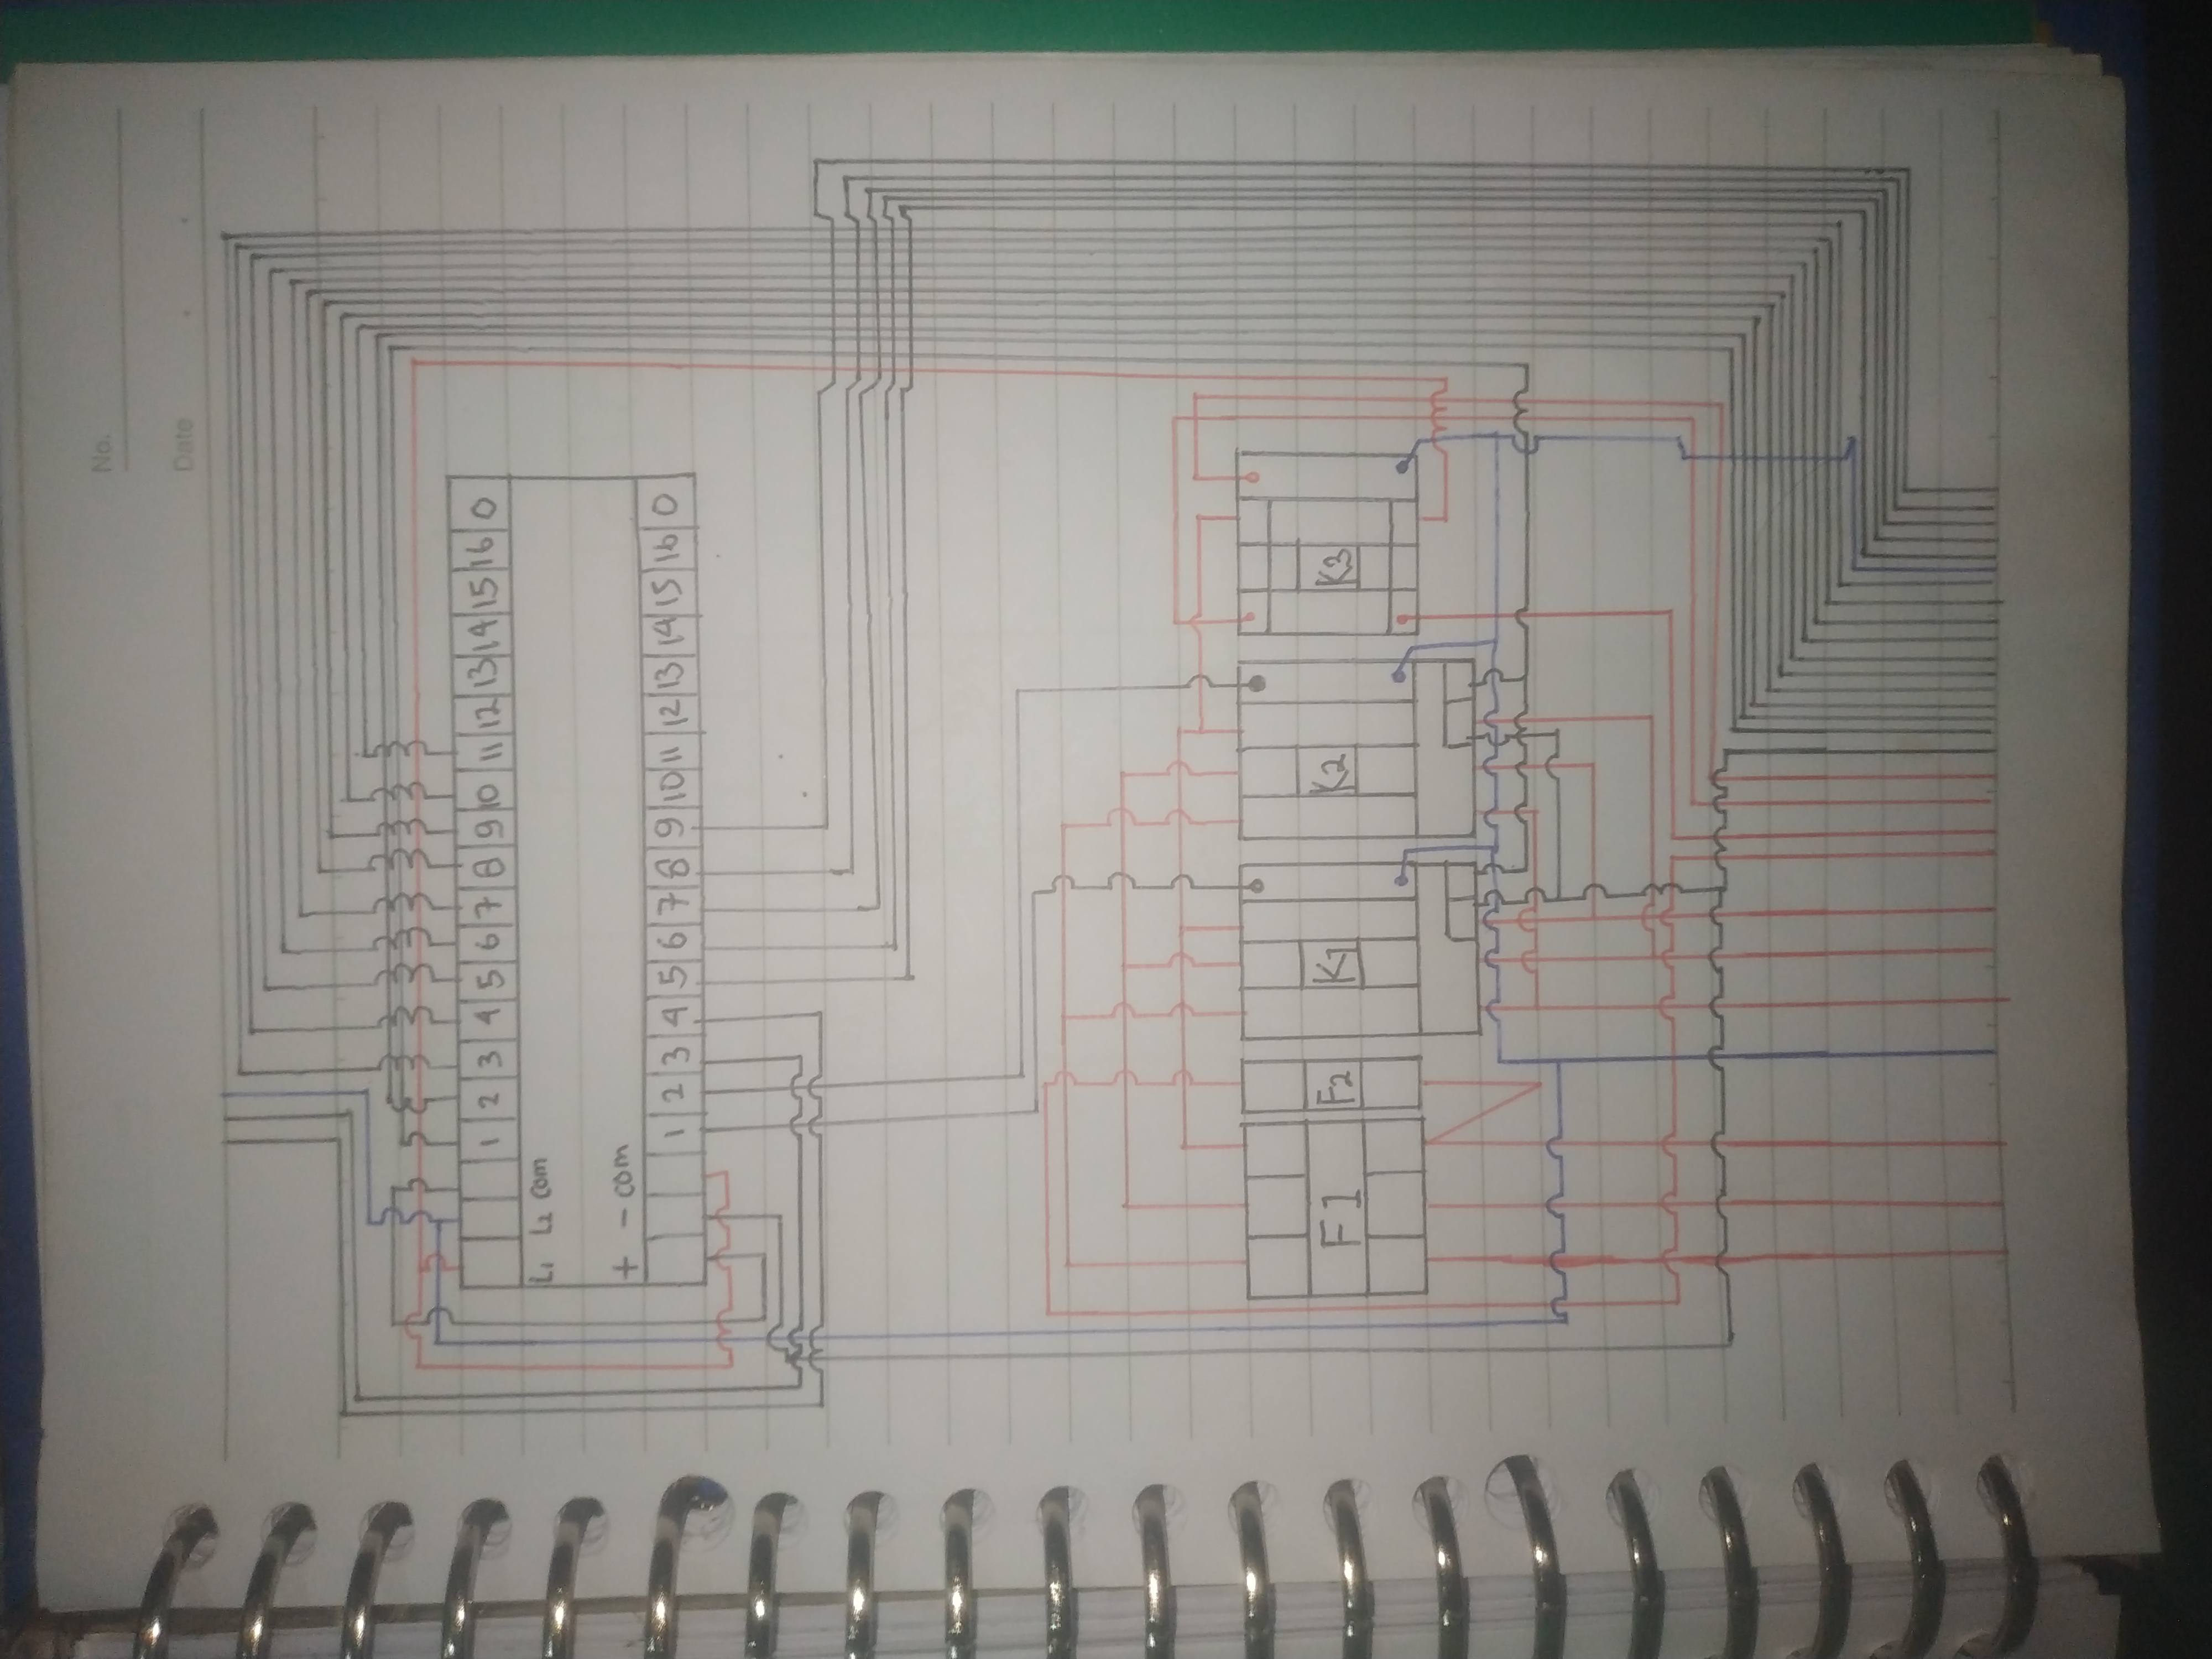 No.
Date
1 2 3 4 5 6 7 8 9 10 11 12 13 14 15 16 0
L1 L2 Com
+ - com
1 2 3 4 5 6 7 8 9 10 11 12 13 14 15 16 0
F1 F2 K1 K2 K3